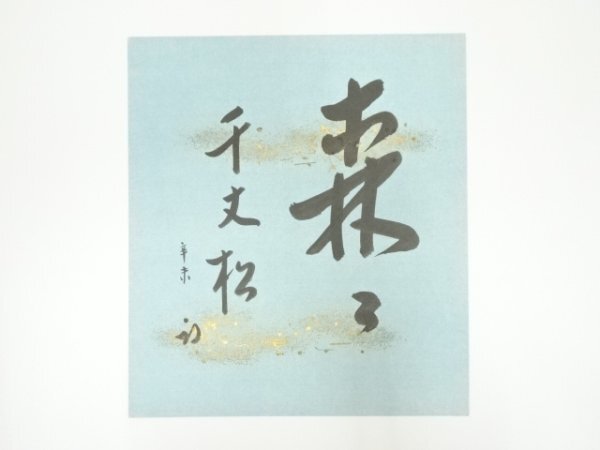 森々
千丈松
辛未